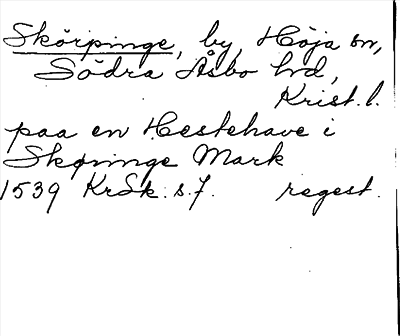 Skörpinge, by, Höja sn,
Södra Åsbo hd,
Krist. l.
paa en Hestehave i
Skøpinge Mark
1539 KrSk. s. 7. regest.